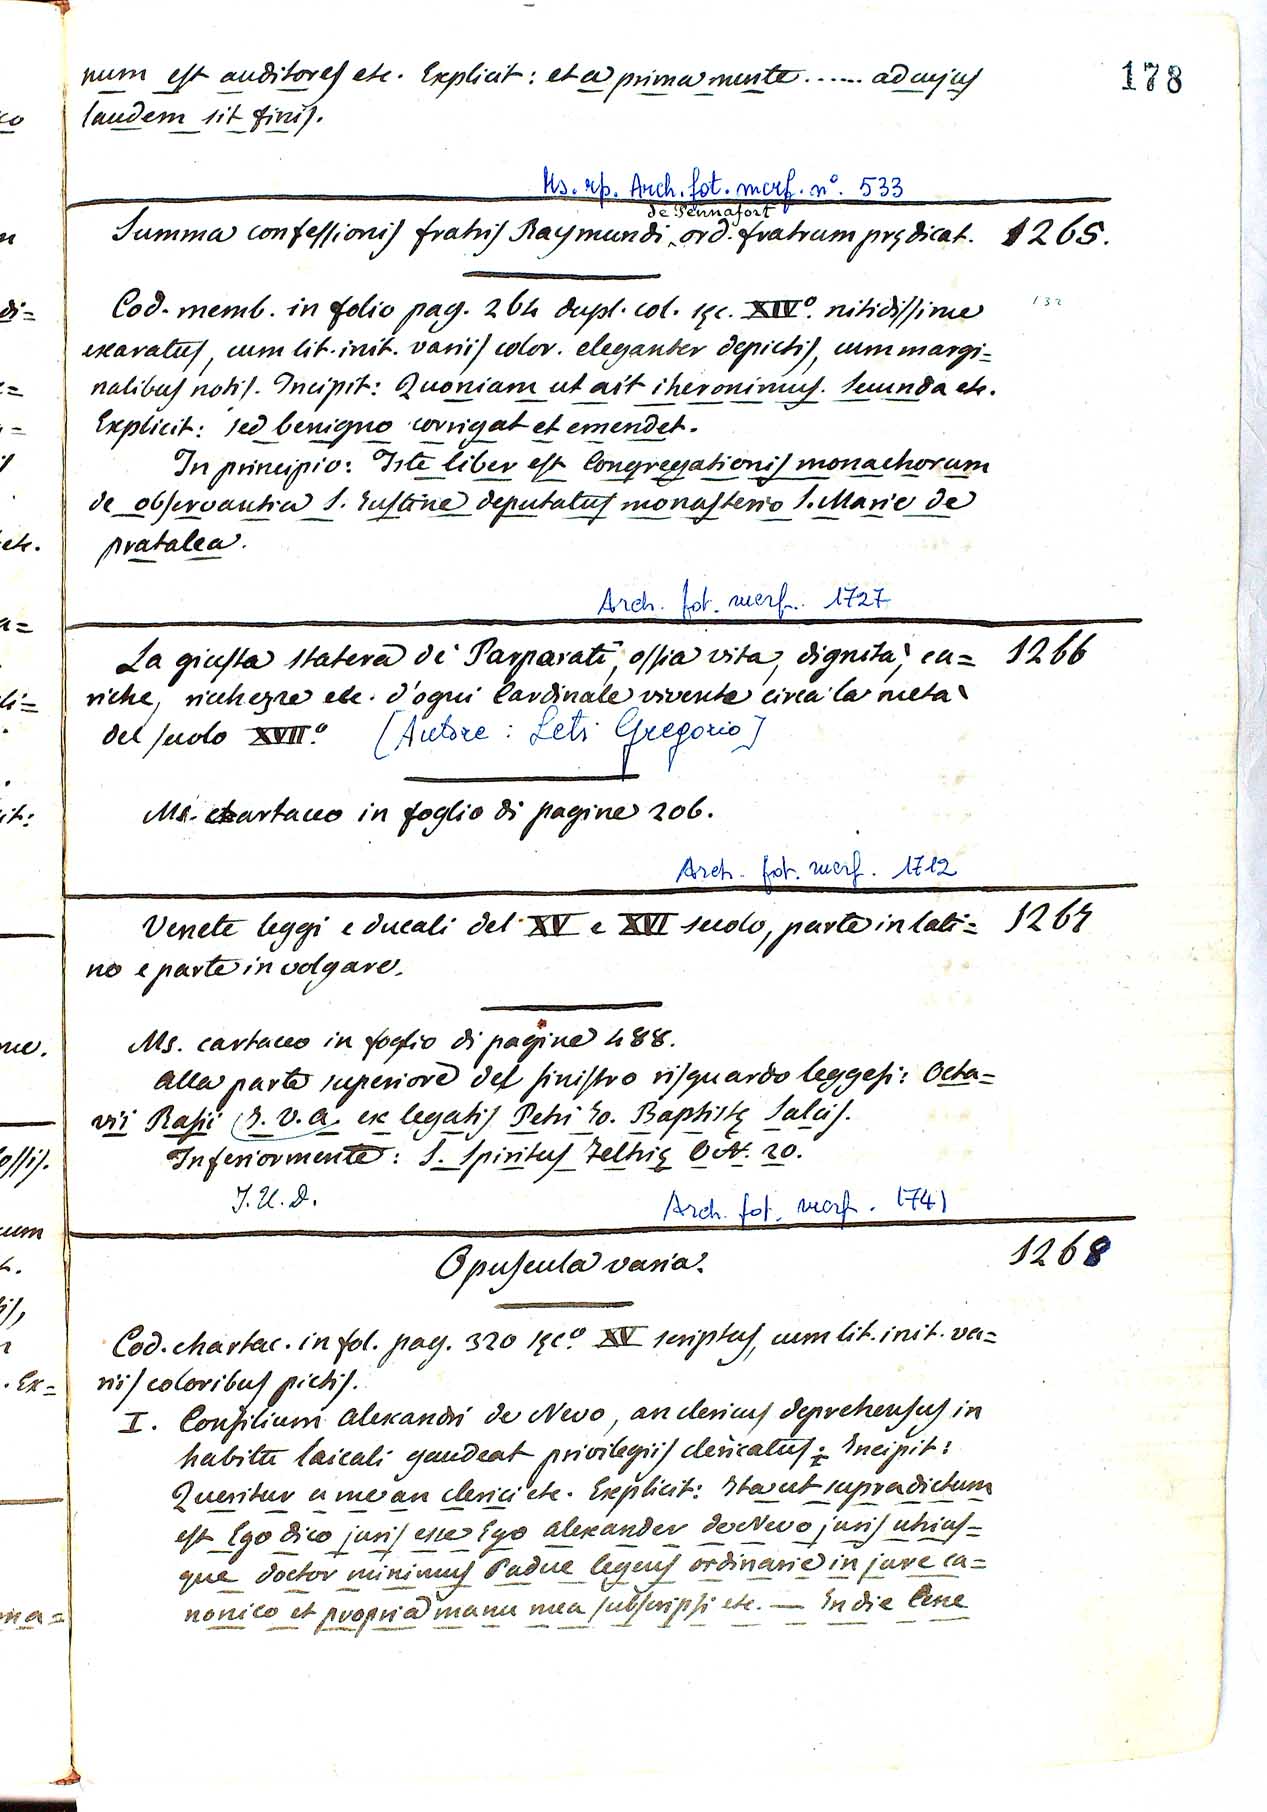 178
num est auditores etc. Explicit: et a prima mente ...... ad cujus
laudem sit finis.
Ms. rp. Arch. fot. merf. n°. 533
de Pennafort
Summa confessionis fratris Raymundi ord. fratrum prędicat. 1265.
Cod. memb. in folio pag. 264 dupl. col. sęc. XIV°. nitidissime 132
exaratus, cum lit. init. variis color. eleganter depictis, cum margi=
nalibus notis. Incipit: Quoniam ut ait iheronimus. Secunda etc.
Explicit: sed benigno corrigat et emendet.
In principio: Iste liber est Congregationis monachorum
de observantia S. Iustine deputatus monasterio S. Marie de
pratalea.
Arch. fot. merf. 1727
La giusta statera de' Parparati, ossia vita, dignità, ca= 1266
riche, richezze etc. d'ogni Cardinale vivente circa la metà
del secolo XVII.° [Autore: Leti Gregorio]
Ms. cartaceo in foglio di pagine 206.
Arch. fot. merf. 1712
Venete leggi e ducali del XV e XVI secolo, parte in lati= 1267
no e parte in volgare.
Ms. cartaceo in foglio di pagine 488.
Alla parte superiore del sinistro risguardo leggesi: Octa=
vii Rasii I. V. a. ex legatis Petri Io. Baptistę Salcis.
Inferiormente: S. Spiritus Feltrię Oct. 20.
J. U. D.
Arch. fot. merf. 1741
Opuscula varia. 1268
Cod. chartac. in fol. pag. 320 sęc°. XV scriptus, cum lit. init. va=
riis coloribus pictis.
I. Consilium Alexandri de Nevo, an clericus deprehensus in
habitu laicali gaudeat privilegiis clericatus: Incipit:
Queritur a me an clerici etc. Explicit: Ita ut supradictum
est Ego dico juris esse Ego Alexander de Nevo juris utrius=
que doctor minimus Padue legens ordinarie in jure ca=
nonico et propria manu mea subscripsi etc. — In die Cene